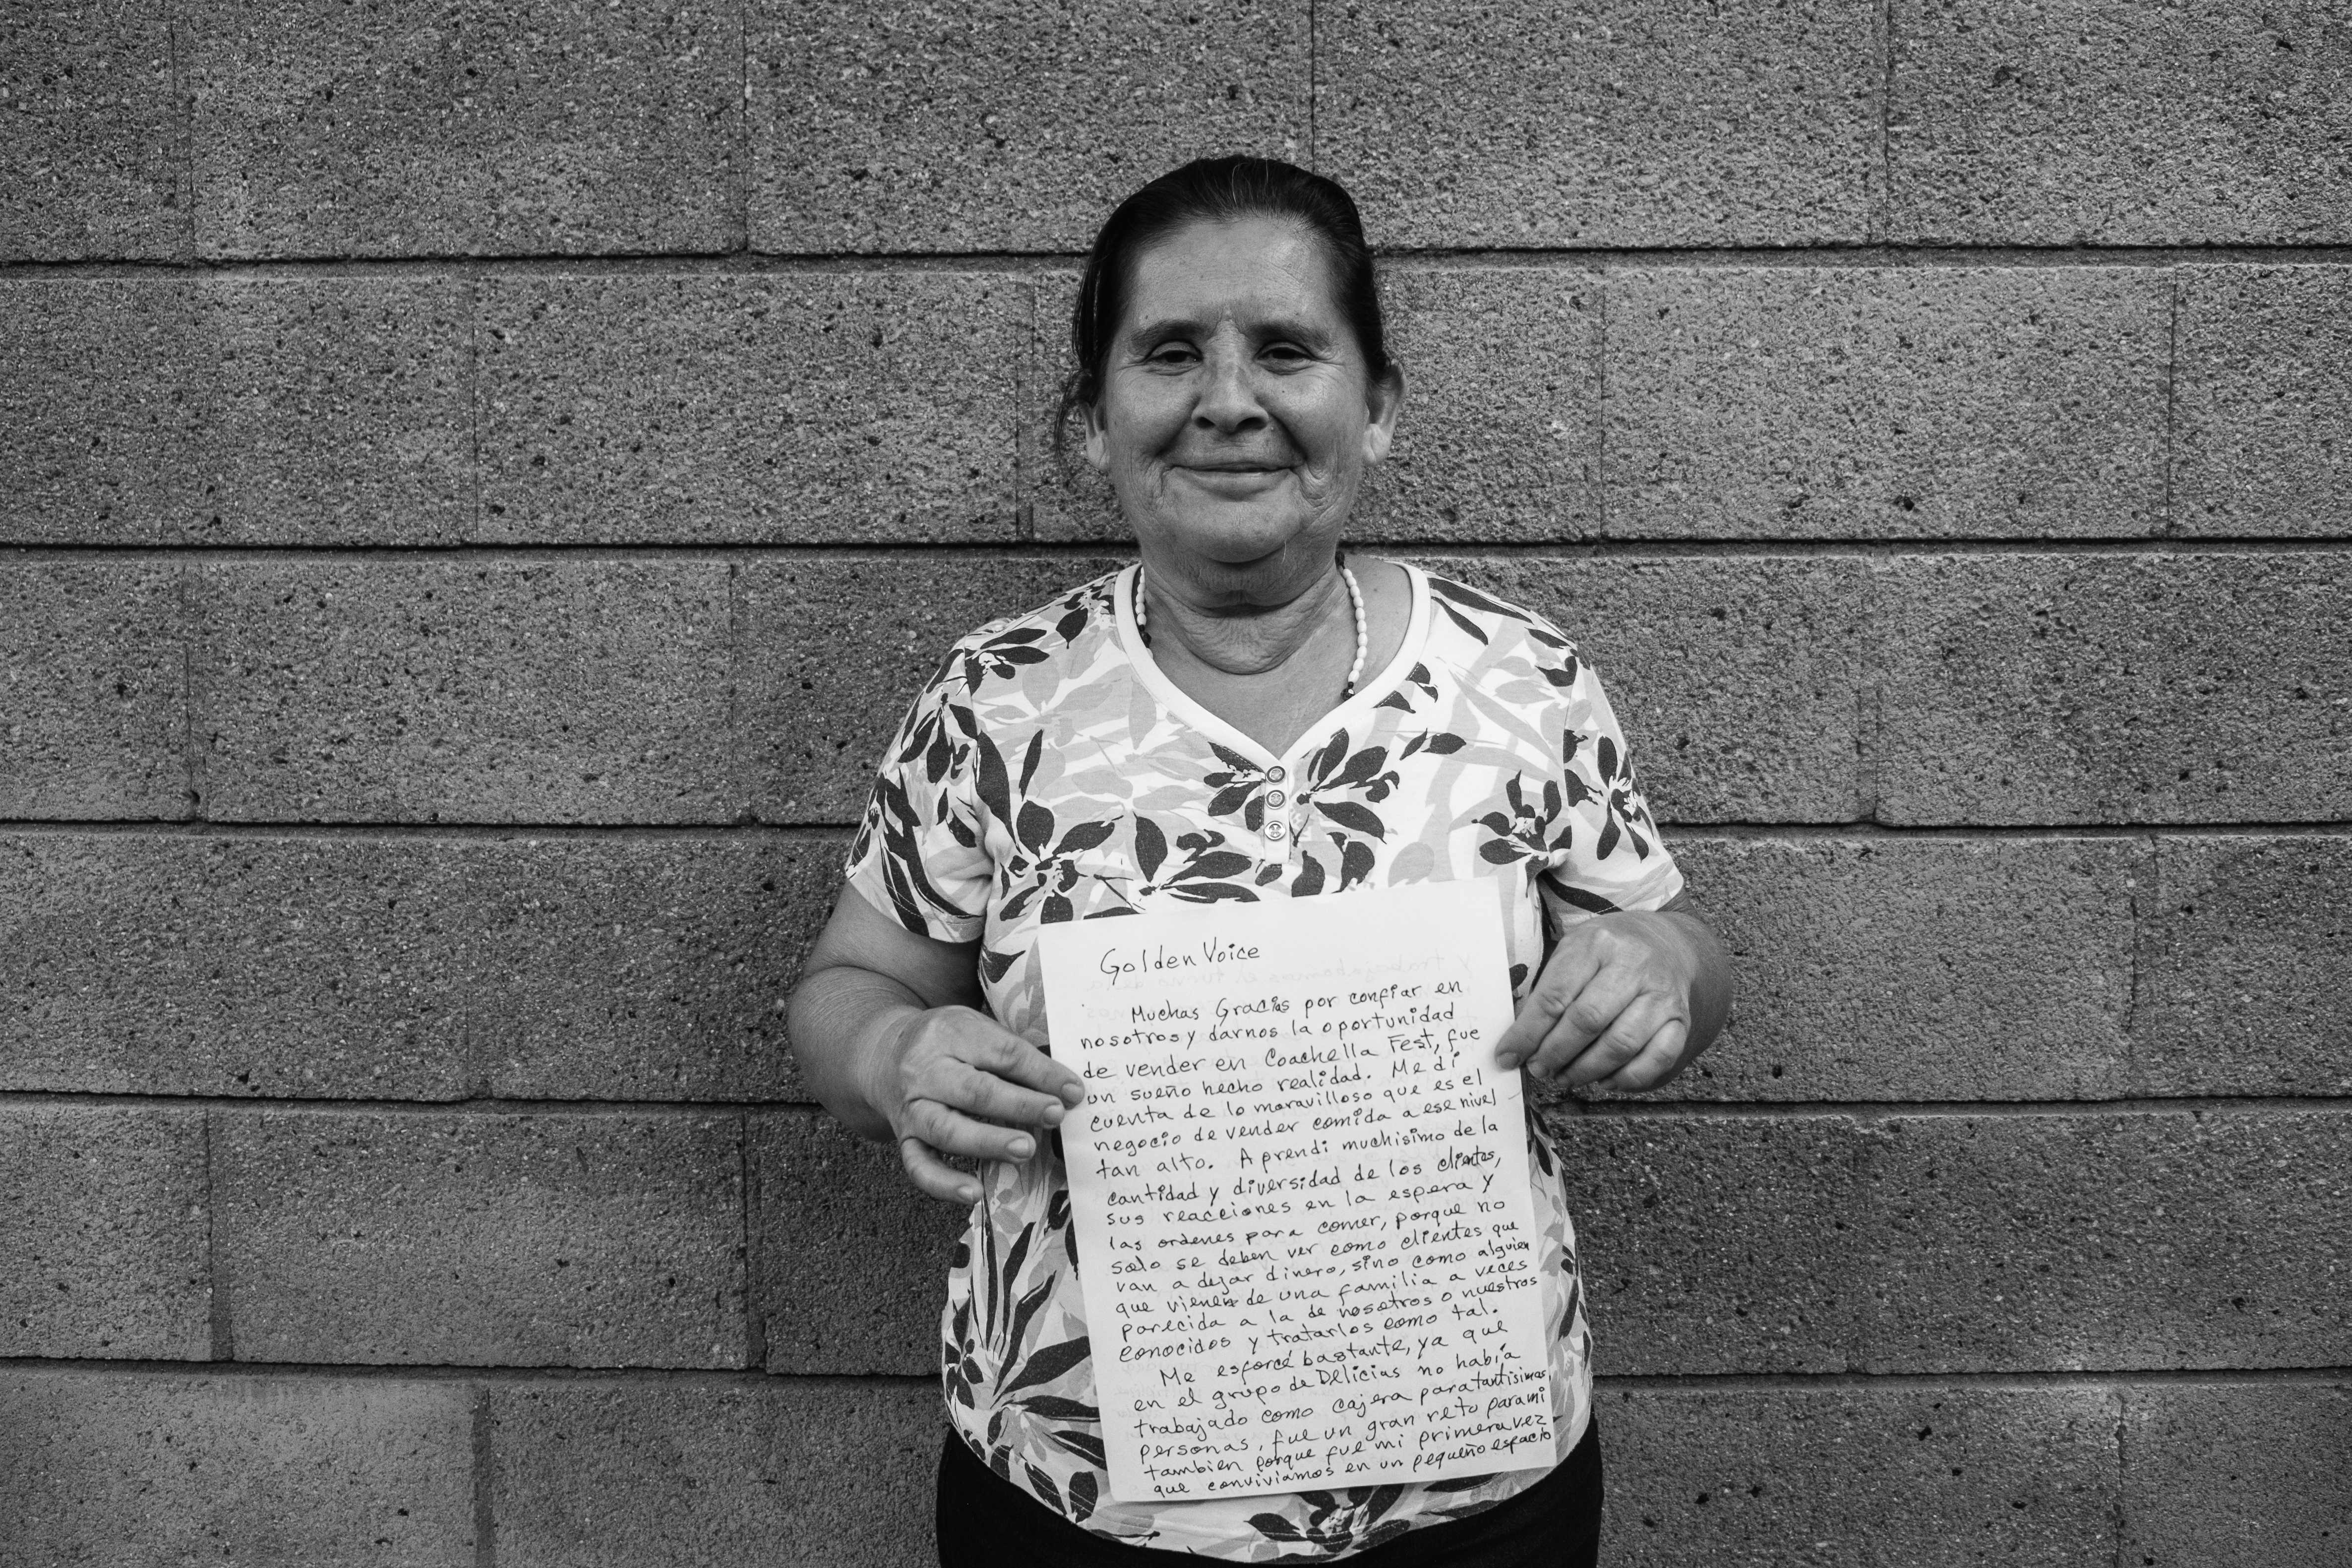 Golden Voice
Muchas Gracias por confiar en
nosotros y darnos la oportunidad
de vender en Coachella Fest, fue
un sueño hecho realidad. Me di
cuenta de lo maravilloso que es el
negocio de vender comida a ese nivel
tan alto. Aprendi muchisimo de la
cantidad y diversidad de los clientes,
sus reacciones en la espera y
las ordenes para comer, porque no
solo se deben ver como clientes que
van a dejar dinero, sino como alguien
que vienen de una familia a veces
parecida a la de nosotros o nuestros
conocidos y tratarlos como tal.
Me esforcé bastante, ya que
en el grupo de Delicias no había
trabajado como cajera para tantisimas
personas, fue un gran reto para mi
tambien porque fue mi primera vez
que conviviamos en un pequeño espacio